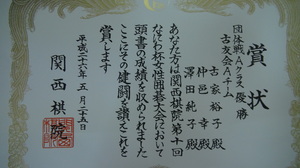 賞状
団体戦Aクラス優勝
古友会Aチーム
古家裕子殿
仲邑幸殿
澤田純子殿
あなた方は関西棋院第十回
なにわ杯女性囲碁大会において
頭書の成績を収められました
ここにその健闘を讃えこれを
賞します
平成二十六年五月二十五日
関西棋院